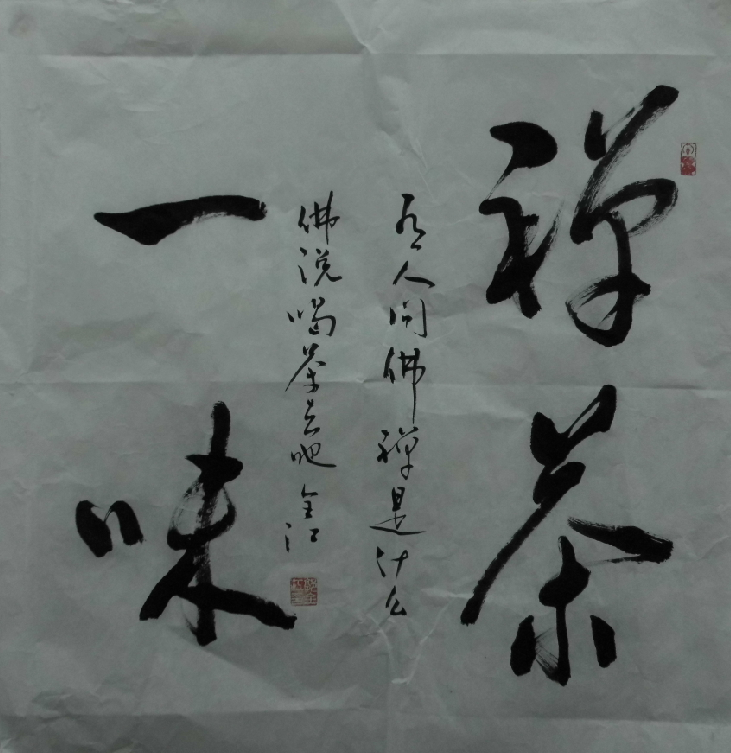 禅茶
有人问佛禅是什么
佛说喝茶去吧 金江
一味